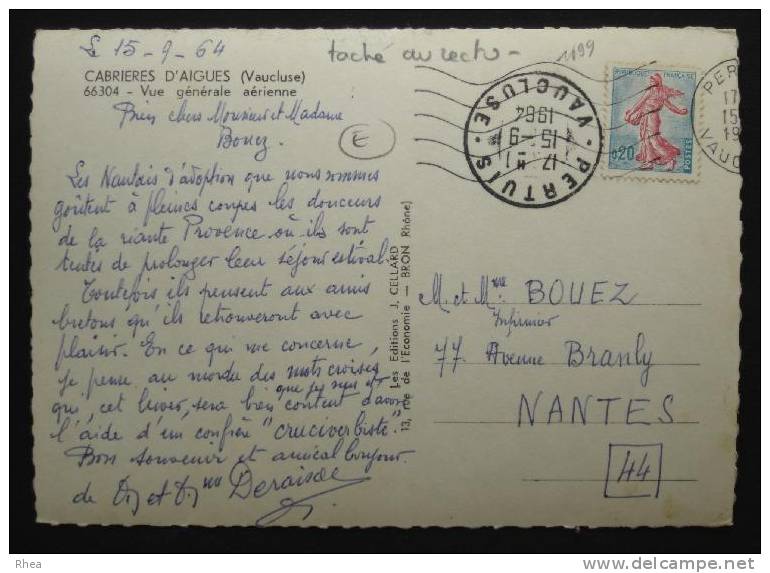 Le 15-9-64
taché au recto -
1199
CABRIERES D'AIGUES (Vaucluse)
66304 - Vue générale aérienne
Bien chers Monsieur et Madame
Bouez.
E
Les Nantais d'adoption que nous sommes
goûtent à pleines coupes les douceurs
de la riante Provence où ils sont
tentés de prolonger leur séjour estival.
Toutefois ils pensent aux amis
bretons qu'ils retrouveront avec
plaisir. En ce qui me concerne,
je pense au mordu des mots croisés
que je suis et
qui, cet hiver, sera bien content d'avoir
l'aide d'un confrère "cruciverbiste".
Bon souvenir et amical bonjour.
de M et Mme
Les Editions J. CELLARD
13, rue de l'Economie — BRON (Rhône)
PERTUIS
VAUCLUSE
17 H
15-9
1964
REPUBLIQUE FRANÇAISE
0,20
POSTES
PER
17
15
19
VAUC
M. et Mme BOUEZ
Infirmier
77 Avenue Branly
NANTES
44
Rhea
delcampe.net